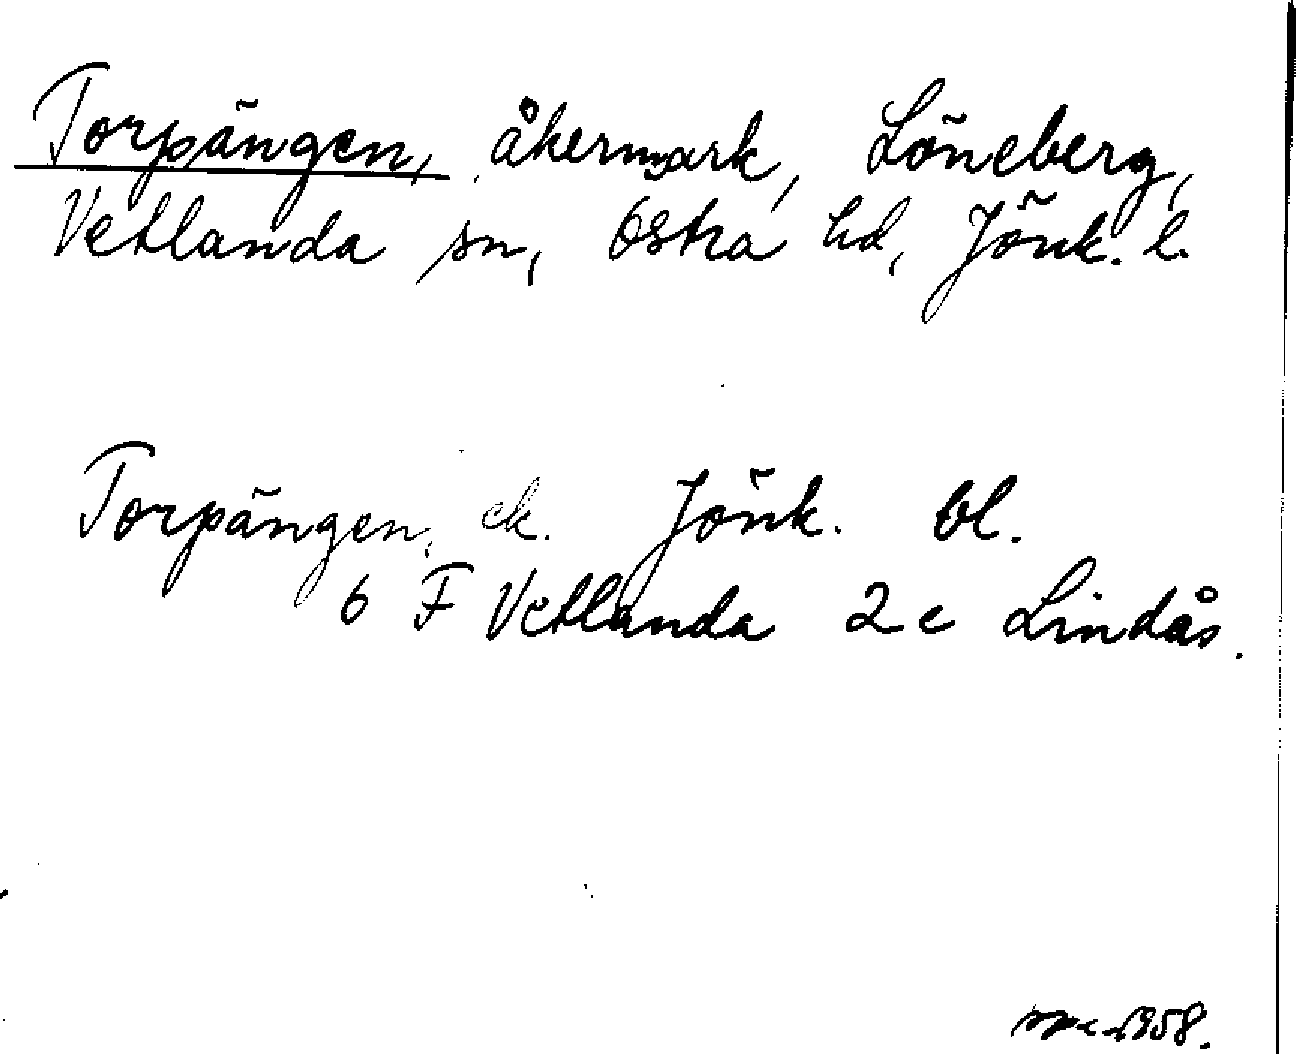 Torpängen, åkermark, Löneberg,
Vetlanda sn, Östra hd, Jönk. l.
Torpängen, ek. Jönk. bl.
6 F Vetlanda 2 e Lindås.
1958.